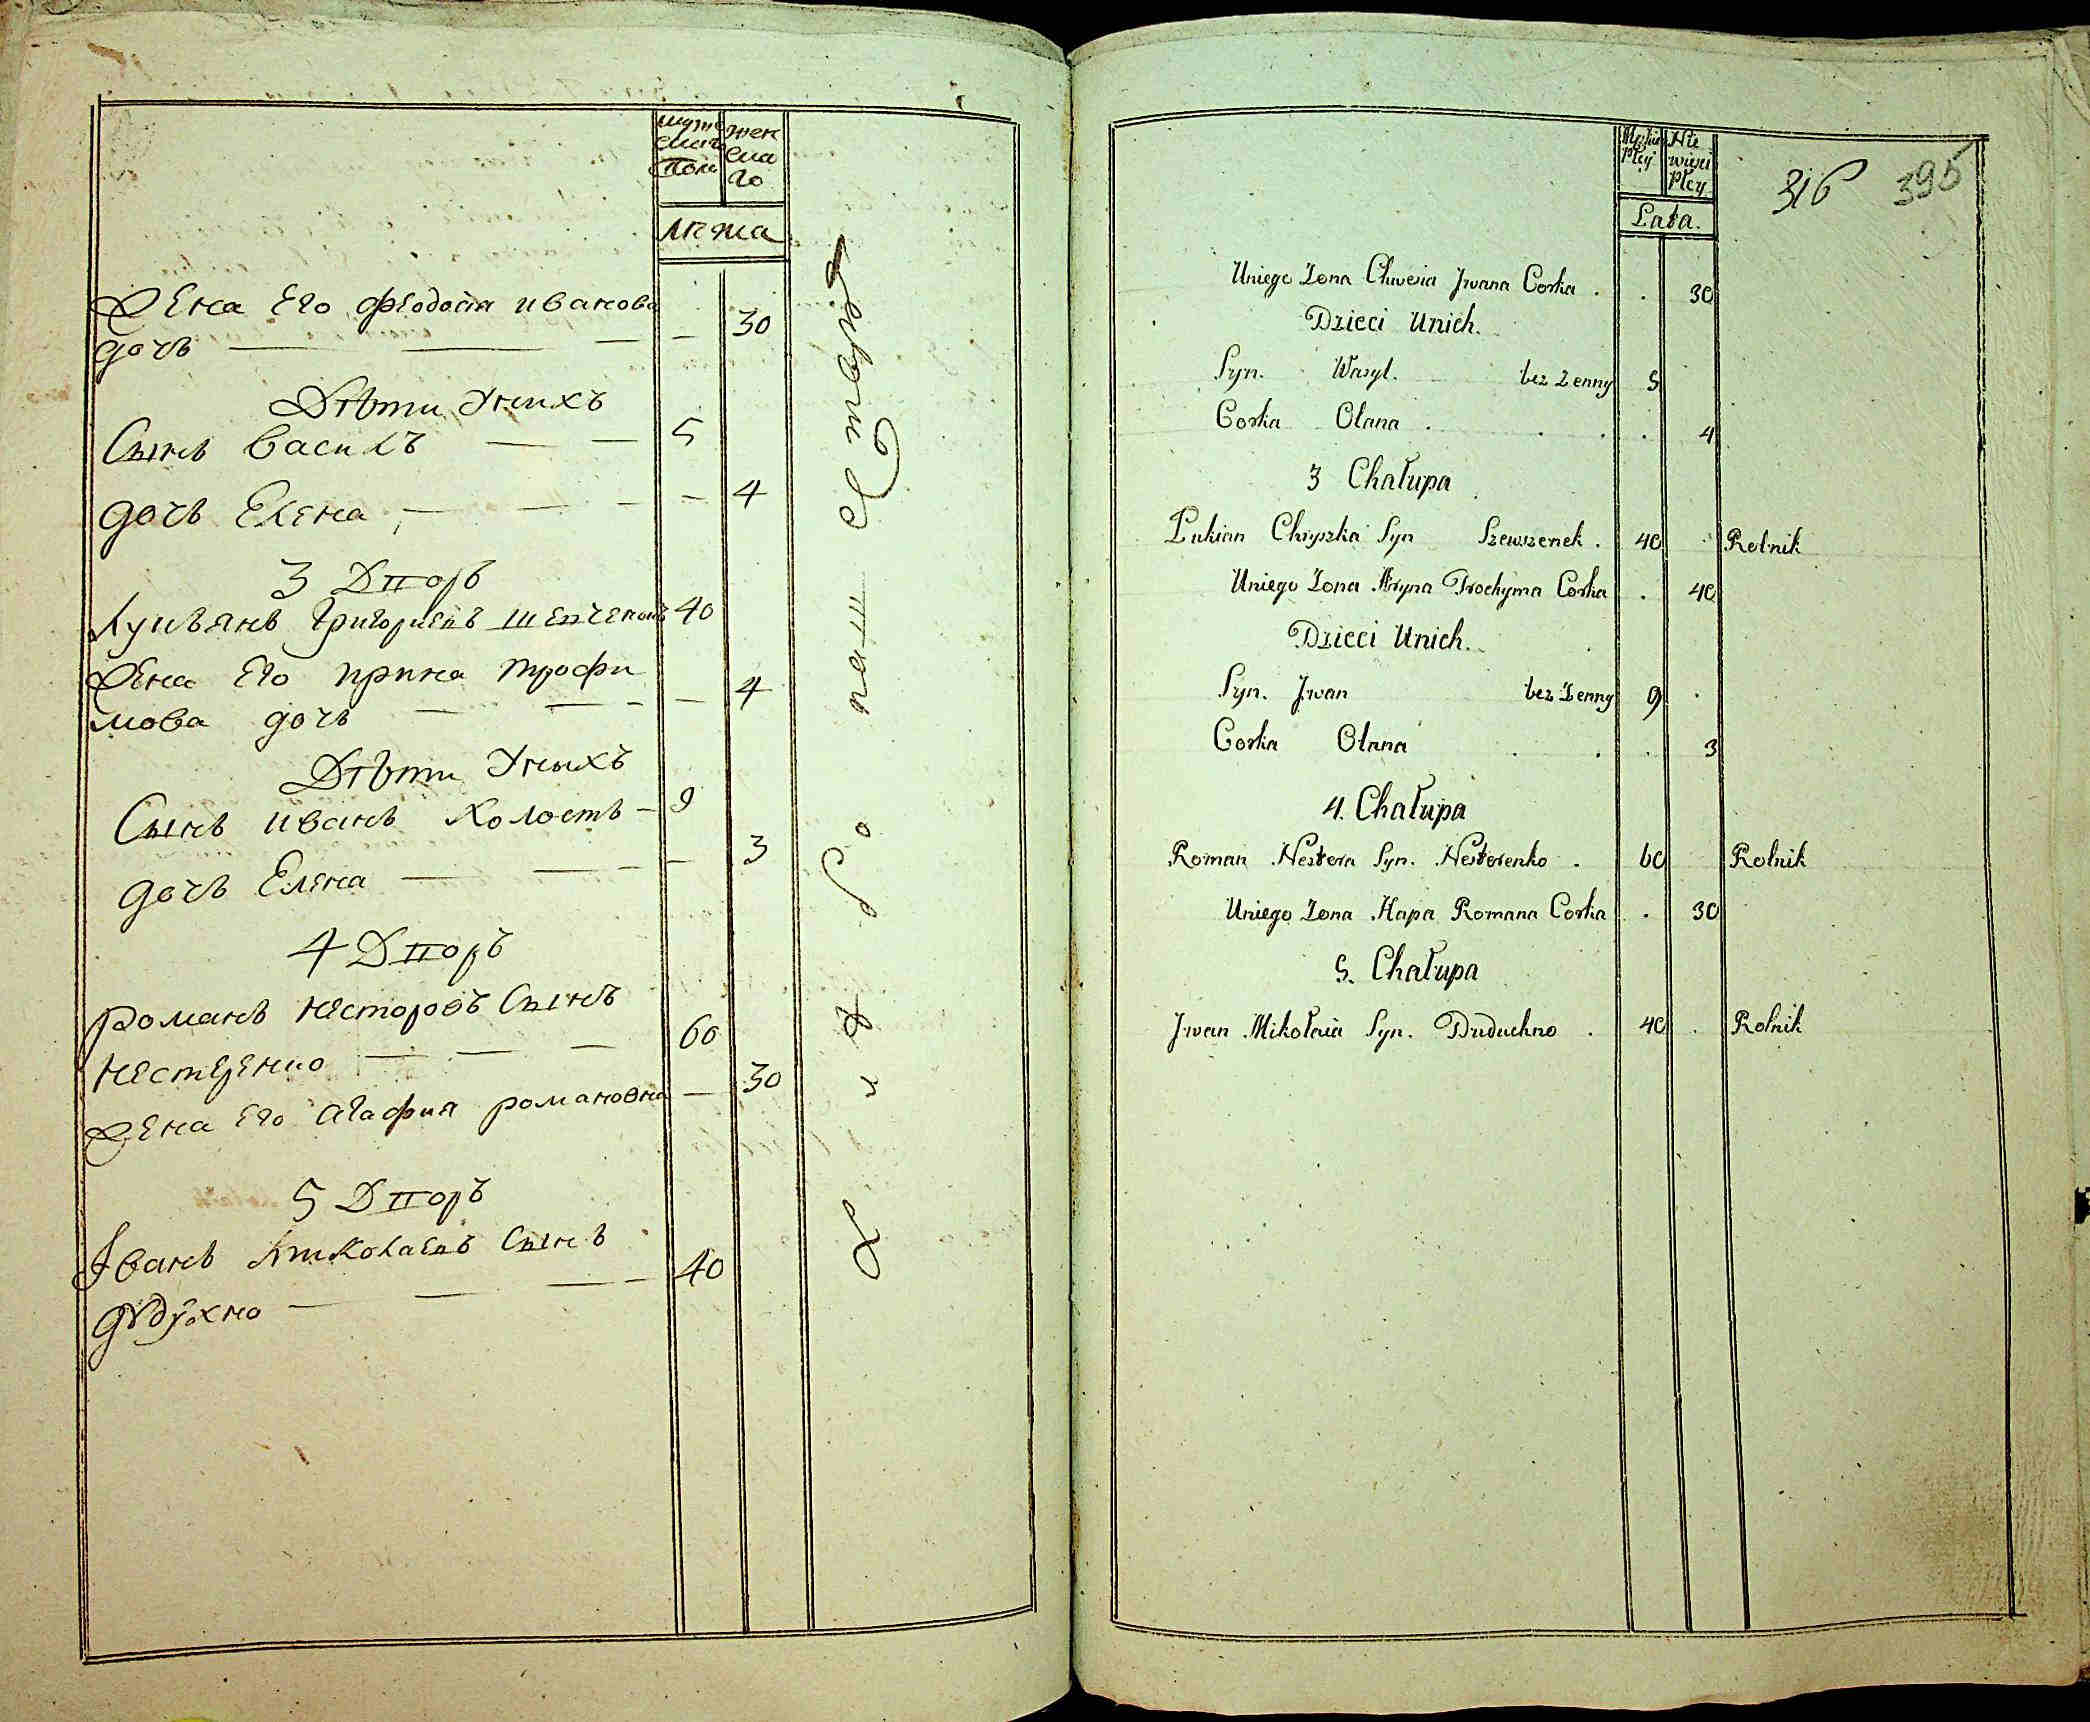 мужескаго пола
женскаго
лѣта
Жена Его Феодосия иванова 30
дочъ
Дѣти Унихъ
Сынъ Василъ 5
дочъ Елена 4
3 Дворъ
Лукъянъ Григориевъ Шевченокъ 40
Жена Его ирина трофи
мова дочъ 4
Дѣти Унихъ
Сынъ иванъ Холостъ 9
дочъ Елена 3
4 Дворъ
романъ несторовъ Сынъ
нестеренко 60
Жена Его агафия романовна 30
5 Дворъ
Іванъ Николаевъ Сынъ
дудухно 40
316 395
Męzkiey Płcy
Niewieściey Płcy
Lata.
Uniego Zona Chwesia Jwana Corka . . 30
Dzieci Unich.
Syn. Wasyl. bez Zenny 5
Corka Olana . . . . 4
3 Chałupa
Łukian Chryszka Syn Szewszenek . 40 Rolnik
Uniego Zona Aryna Trochyma Corka . 40
Dzieci Unich.
Syn. Jwan bez Zenny 9 .
Corka Olana . . . 3
4. Chałupa
Roman Nestera Syn. Nesterenko . 60 Rolnik
Uniego Zona Hapa Romana Corka . 30
5. Chałupa
Jwan Mikołaia Syn. Duduchno . 40 . Rolnik